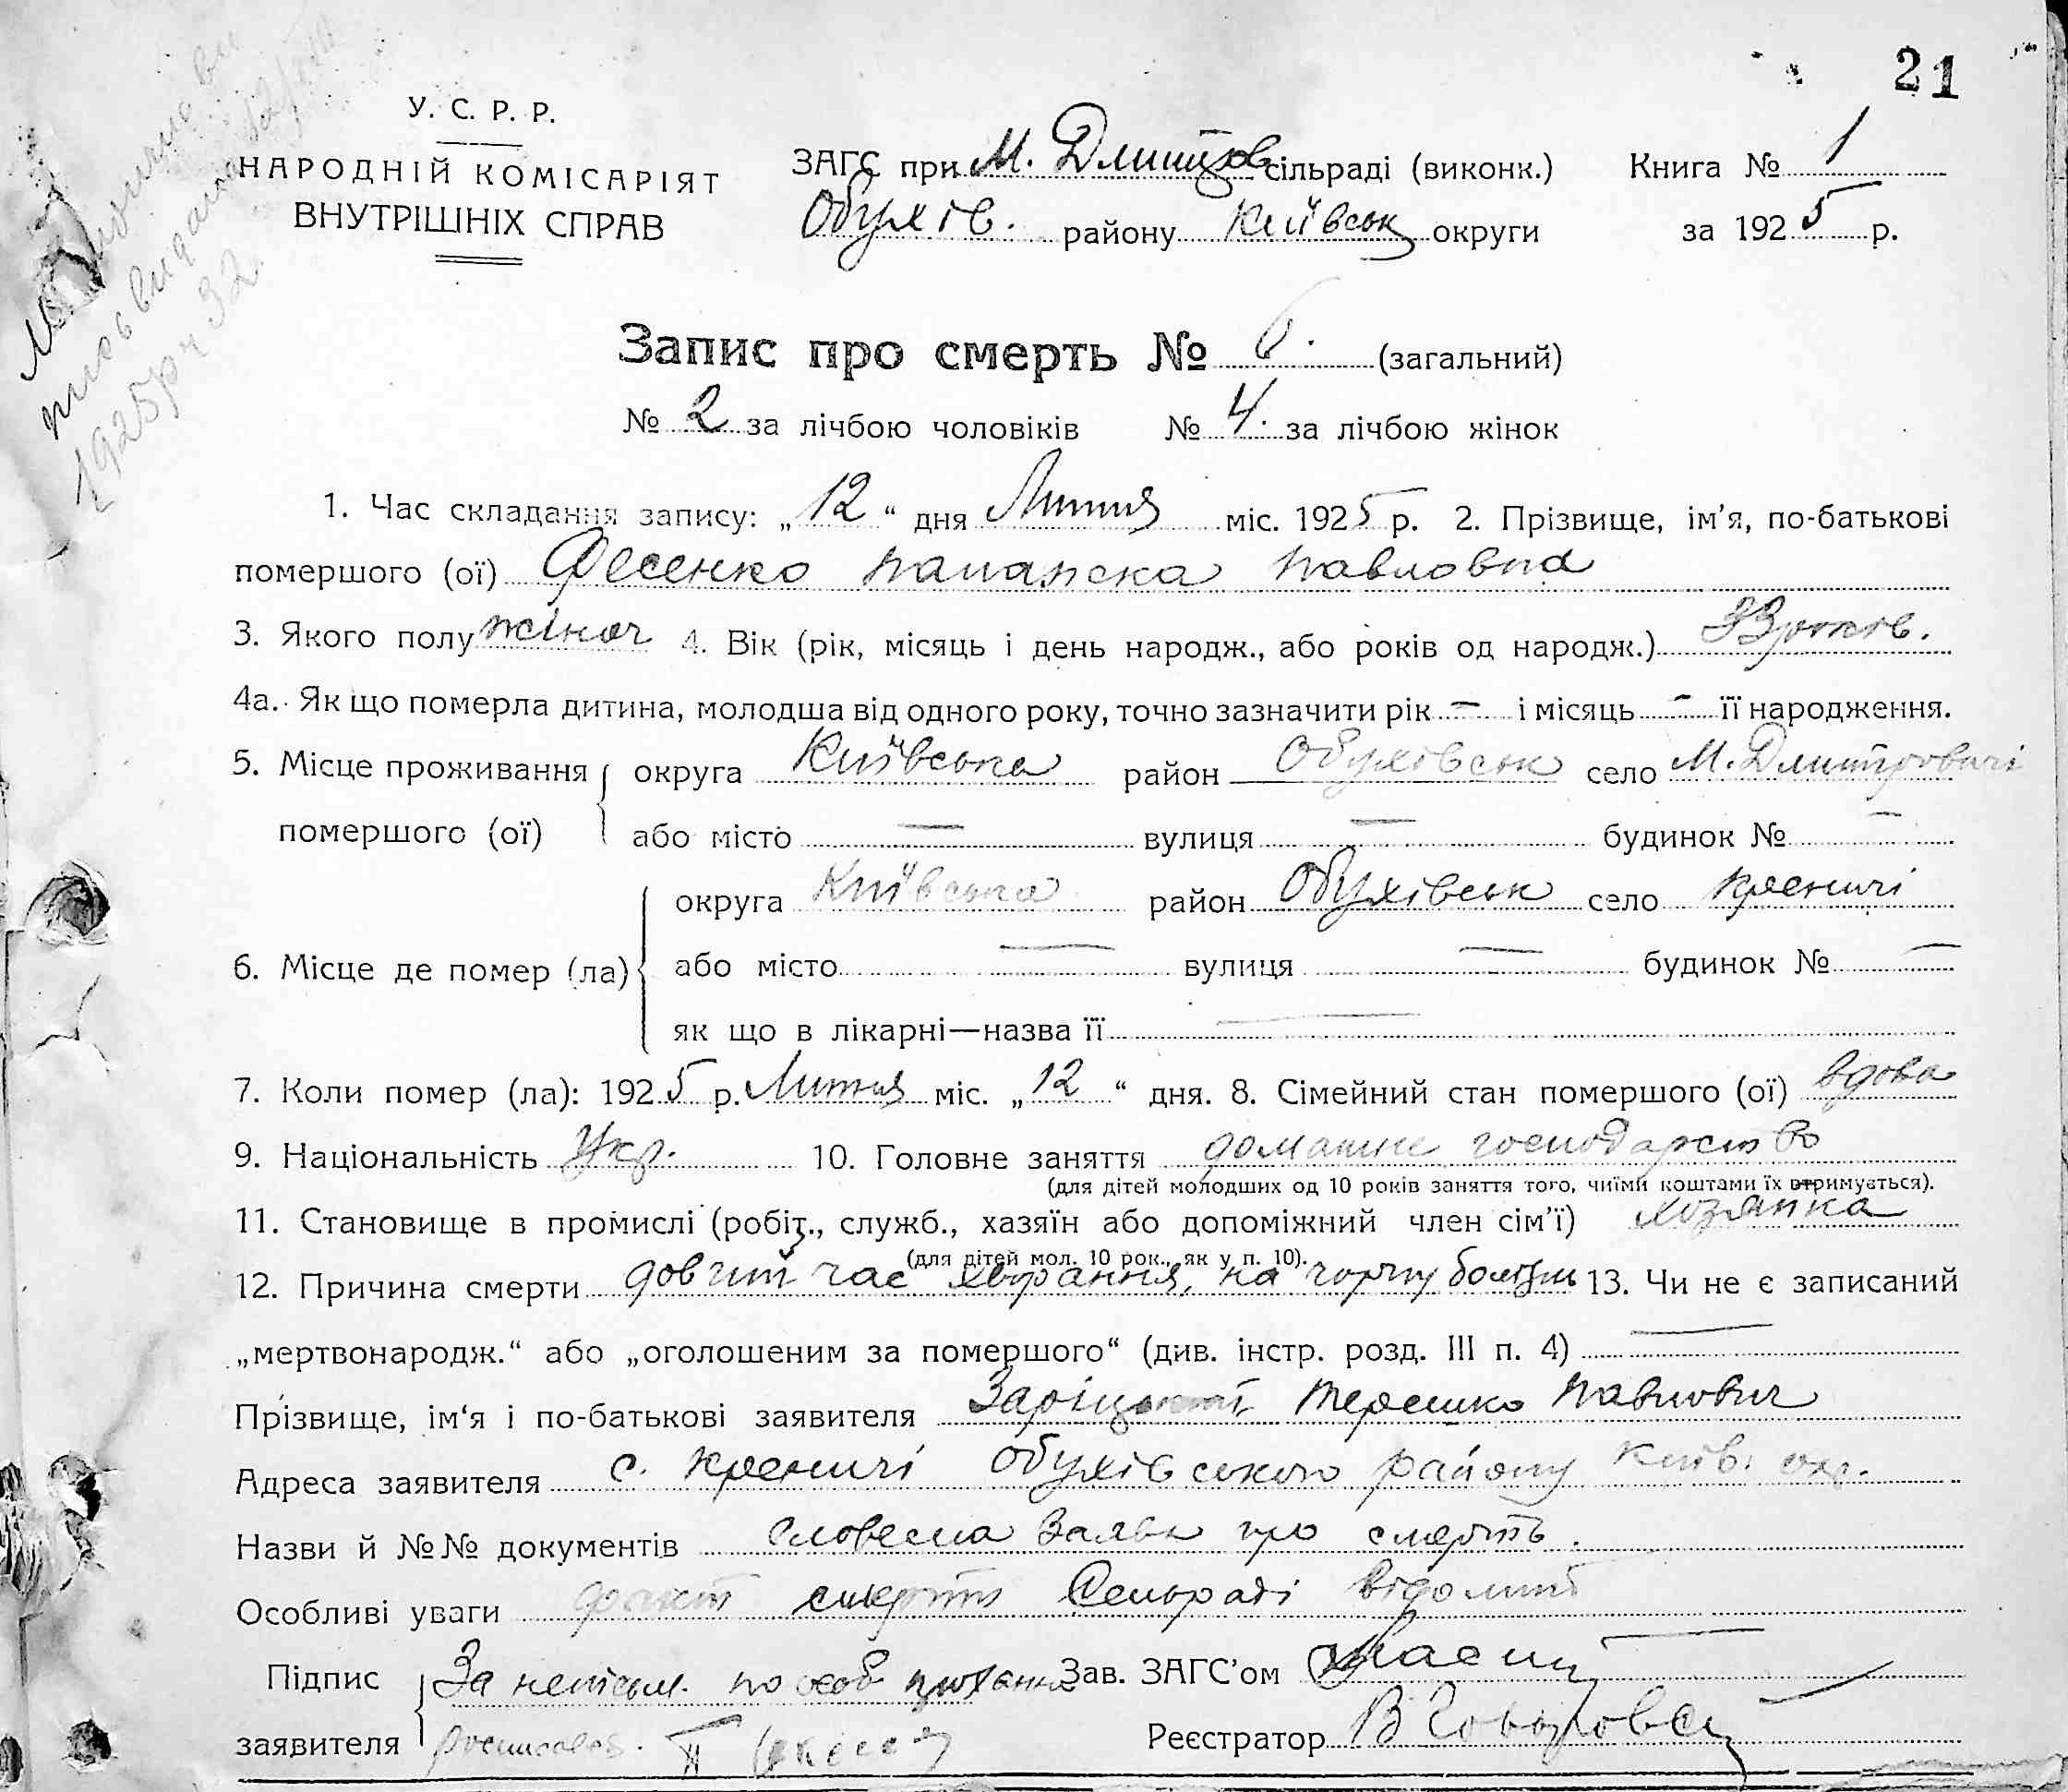 21
У. С. Р. Р.
НАРОДНІЙ КОМІСАРІЯТ
ВНУТРІШНІХ СПРАВ
ЗАГС при М. Дмитров сільраді (виконк.) Книга № 1
Обухів. району Київськ округи за 1925 р.
1925 р ч 32.
Запис про смерть № 6. (загальний)
№ 2 за лічбою чоловіків № 4. за лічбою жінок
1. Час складання запису: „12“ дня Лютня міс. 1925 р. 2. Прізвище, ім’я, по-батькові
помершого (ої) Фесенко Палажка Павловна
3. Якого полу жіноч 4. Вік (рік, місяць і день народж., або років од народж.) років.
4а. Як що померла дитина, молодша від одного року, точно зазначити рік — і місяць - її народження.
5. Місце проживання округа Київська район Обухівськ село М. Дмитровичі
помершого (ої) або місто — вулиця — будинок № —
округа Київська район Обухівськ село Креничі
6. Місце де помер (ла) або місто — вулиця — будинок № —
як що в лікарні—назва її —
7. Коли помер (ла): 1925 р. Лютня міс. „12“ дня. 8. Сімейний стан помершого (ої) вдова
9. Національність Укр. 10. Головне заняття домашне господарство
(для дітей молодших од 10 років заняття того, чиїми коштами їх втримується).
11. Становище в промислі (робіт., служб., хазяїн або допоміжний член сім’ї) хозяйка
(для дітей мол. 10 рок., як у п. 10).
12. Причина смерти довгий час хворання, на 13. Чи не є записаний
„мертвонародж.“ або „оголошеним за помершого“ (див. інстр. розд. III п. 4) —
Прізвище, ім‘я і по-батькові заявителя Заріцький Терешко Павлович
Адреса заявителя с. Креничі Обухівського району Київ. окр.
Назви й №№ документів Словесна заява про смерть.
Особливі уваги факт смерти Сельраді відомий
Підпис За непісьм. по особ проханню Зав. ЗАГС’ом
заявителя росписався. Реєстратор